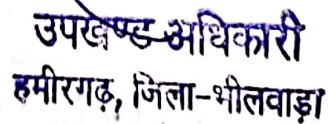 उपखण्ड अधिकारी
हमीरगढ़, जिला-भीलवाड़ा